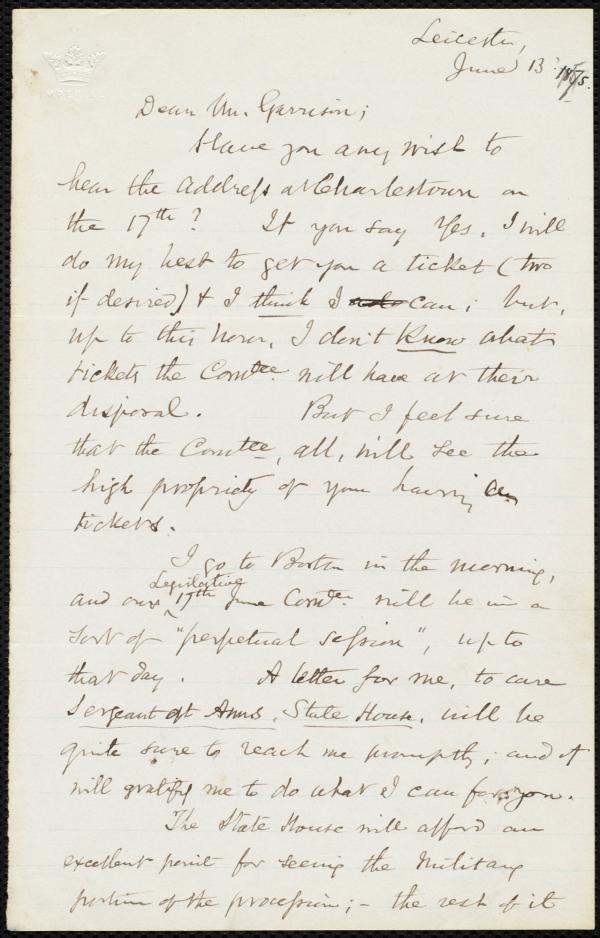 IMPERIAL
Leicester,
June 13. 1875.
Dear Mr. Garrison;
Have you any wish to
hear the Address at Charlestown on
the 17th? If you say Yes, I will
do my best to get you a ticket (two
if desired) & I think I can; but,
up to this hour, I don't know what
tickets the Comtee. will have at their
disposal. But I feel sure
that the Comtee, all, will see the
high propriety of your having
tickets.
I go to Boston in the morning,
Legislative
and our 17th June Comtee. will be in a
sort of "perpetual session", up to
that day. A letter for me, to care
Sergeant at Arms, State House, will be
quite sure to reach me promptly; and it
will gratify me to do what I can for you.
The State House will afford an
excellent point for seeing the Military
portion of the procession; – the rest of it